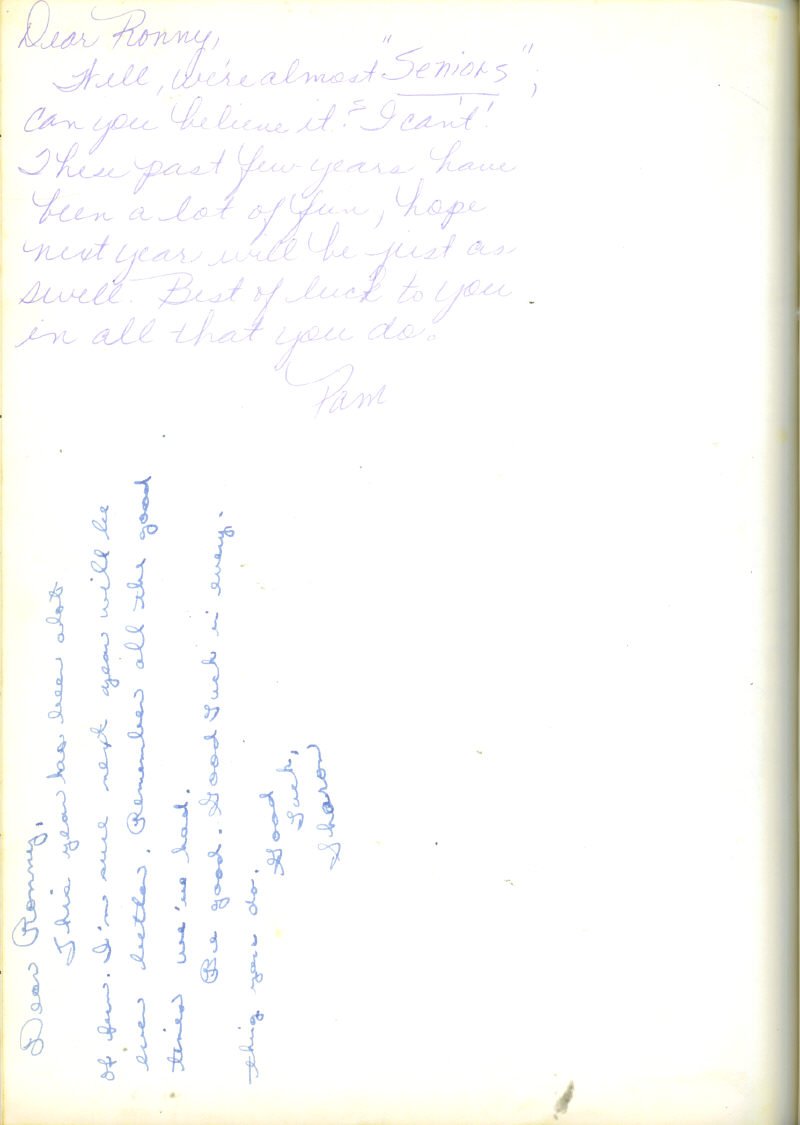 Dear Ronny,
Well, we're almost "Seniors";
can you believe it? I can't!
These past few years have
been a lot of fun, hope
next year will be just as
swell. Best of luck to you
in all that you do.
Pam
Dear Ronny,
This year has been alot
of fun. I'm sure next year will be
even better. Remember all the good
times we've had.
Be good. Good Luck in every-
thig you do.
Good
Luck,
Sharon